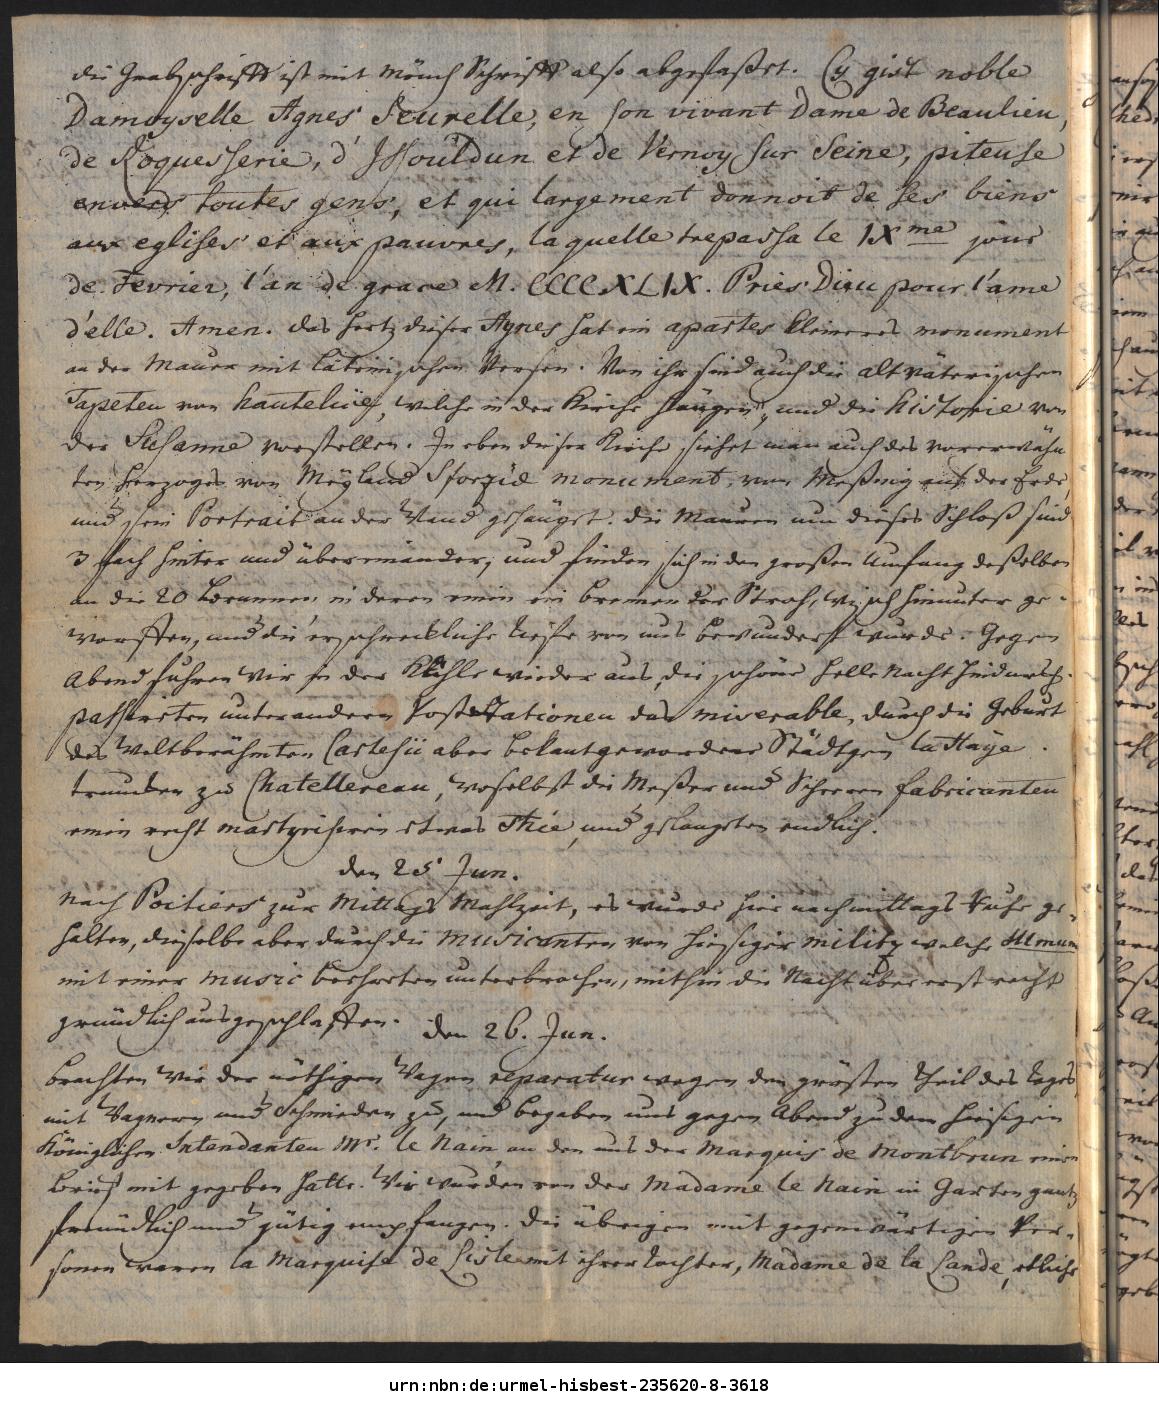 die Grabschrifft ist mit Mönch Schrifft also abgefasset. Cy gist noble
Damoyselle Agnes Seurelle, en son vivant Dame de Beaulieu,
de Roquesserie, d'Issouldun et de Vernoy sur Seine, piteuse
envers toutes gens, et qui largement donnoit de ses biens
aux eglises et aux pauvres, laquelle trepassa le IXme jour
de Fevrier, l'an de grace M. CCCCXLIX. Pries Dieu pour l'ame
d'elle. Amen. das Hertz dieser Agnes hat ein apartes kleineres monument
an der Mauer mit lateinischen Versen. Von ihr sind auch die altväterischen
Tapeten von hautelice, welche in der Kirche hängen, und die Historie von
der Susanne vorstellen. In eben dieser Kirche siehet man auch des vorerwähn
ten Herzogs von Meyland Sforziae monument, von Meßing auf der Erde,
und sein Portrait an der Wand gehänget. die Mauren um dieses Schloß sind
3 fach hinter und übereinander, und finden sich in den großen Umfang deßelben
an die 20 Brunnen, in deren einen ein brennender Stroh Wisch hinunter ge-
worffen, und die erschreckliche Tieffe von uns bewundert wurde. Gegen
Abend fuhren wir in der Kühle wieder aus, die schöne helle Nacht hindurch
passireten unter andern Post Stationen das miserable, durch die Geburt
des Weltberühmten Cartesii aber bekant gewordene Städtgen la Haye.
truncken zu Chatellereau, woselbst die Meßer und Scheeren fabricanten
einen recht martyrisiren etwas Thée, und gelangten endlich.
den 25 Jun.
nach Poitiers zur Mittags Mahlzeit, es wurde hier nachmittags Ruhe ge-
halten, dieselbe aber durch die Musicanten von hiesiger militz welche Illmum
mit einer music beehrten unterbrochen, mithin die Nacht über erst recht
gründlich ausgeschlaffen.
den 26. Jun.
brachten wir der nöthigen Wagen reparatur wegen den grösten Theil des Tages
mit Wagnern und Schmieden zu, und begaben uns gegen Abend zu dem hiesigen
Königlichen Intendanten Mr. le Nain an den uns der Marquis de Montbrun einen
Brief mit gegeben hatte. Wir wurden von der Madame le Nain in Garten gantz
freundlich und gütig empfangen. die übrigen mit gegenwärtigen Per-
sonen waren la Marquise de Liste mit ihrer Tochter, Madame de la Lande, etliche
urn:nbn:de:urmel-hisbest-235620-8-3618